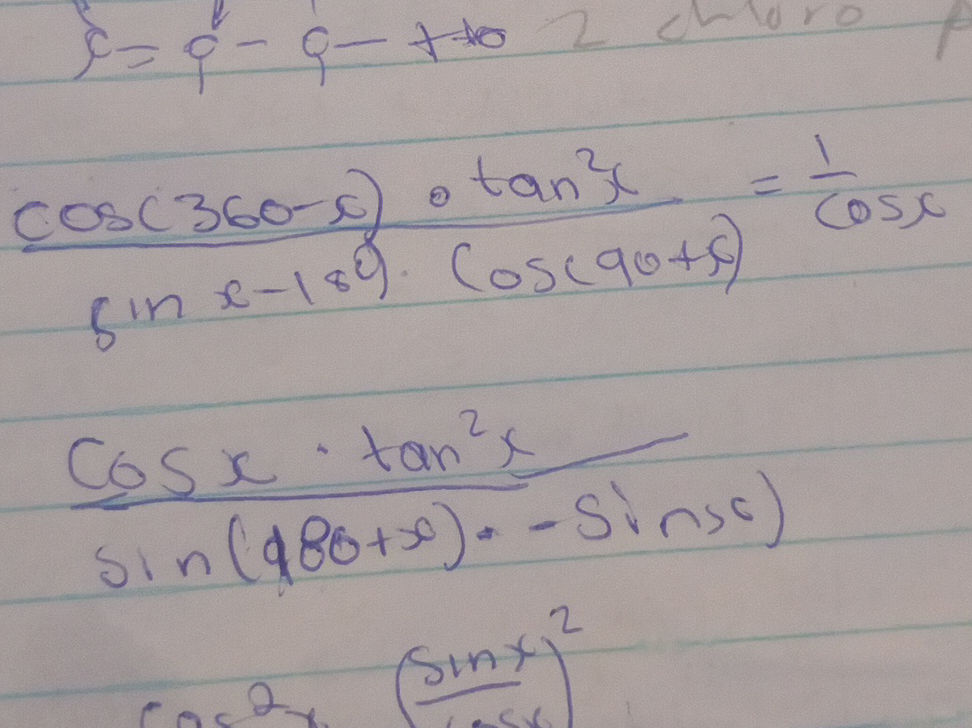 c = c - c - 2 chloro
cos(360-x) • tan²x = 1
sin x-180). cos(90+x) cosx
cosx · tan²x
sin(180+x) · -sinx)
cos²x (sinx)²
cosx